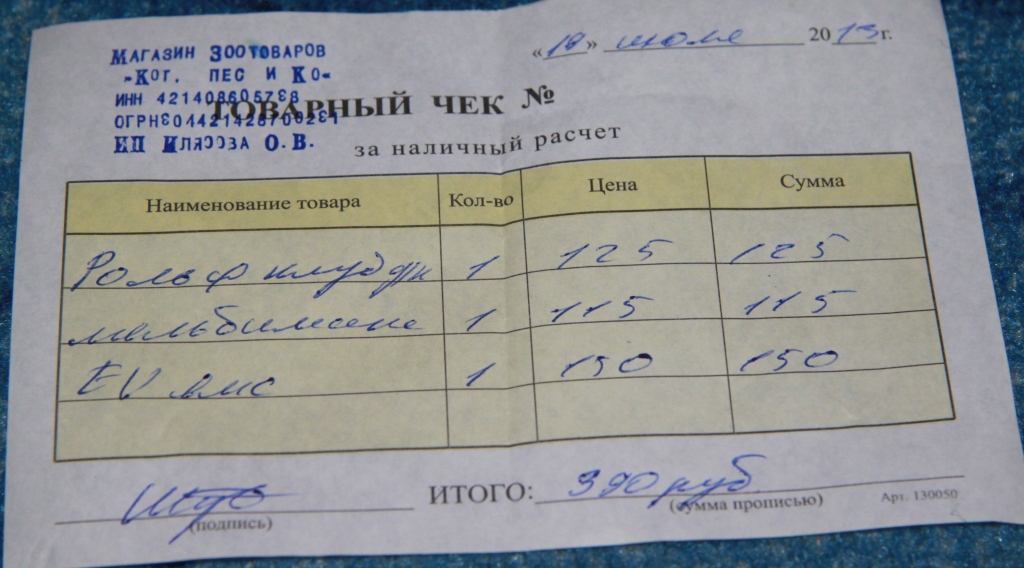 Магазин Зоотоваров
«Кот, пес и Ко»
ИНН 421408605738
ОГРН304421428700231
ИП Илясова О.В.
«19» июля 2013 г.
ТОВАРНЫЙ ЧЕК №
за наличный расчет
Наименование товара Кол-во Цена Сумма
Рольф клуб 1 125 125
1 115 115
EV 1 150 150
ИТОГО: 390 руб
(подпись) (сумма прописью) Арт. 130050